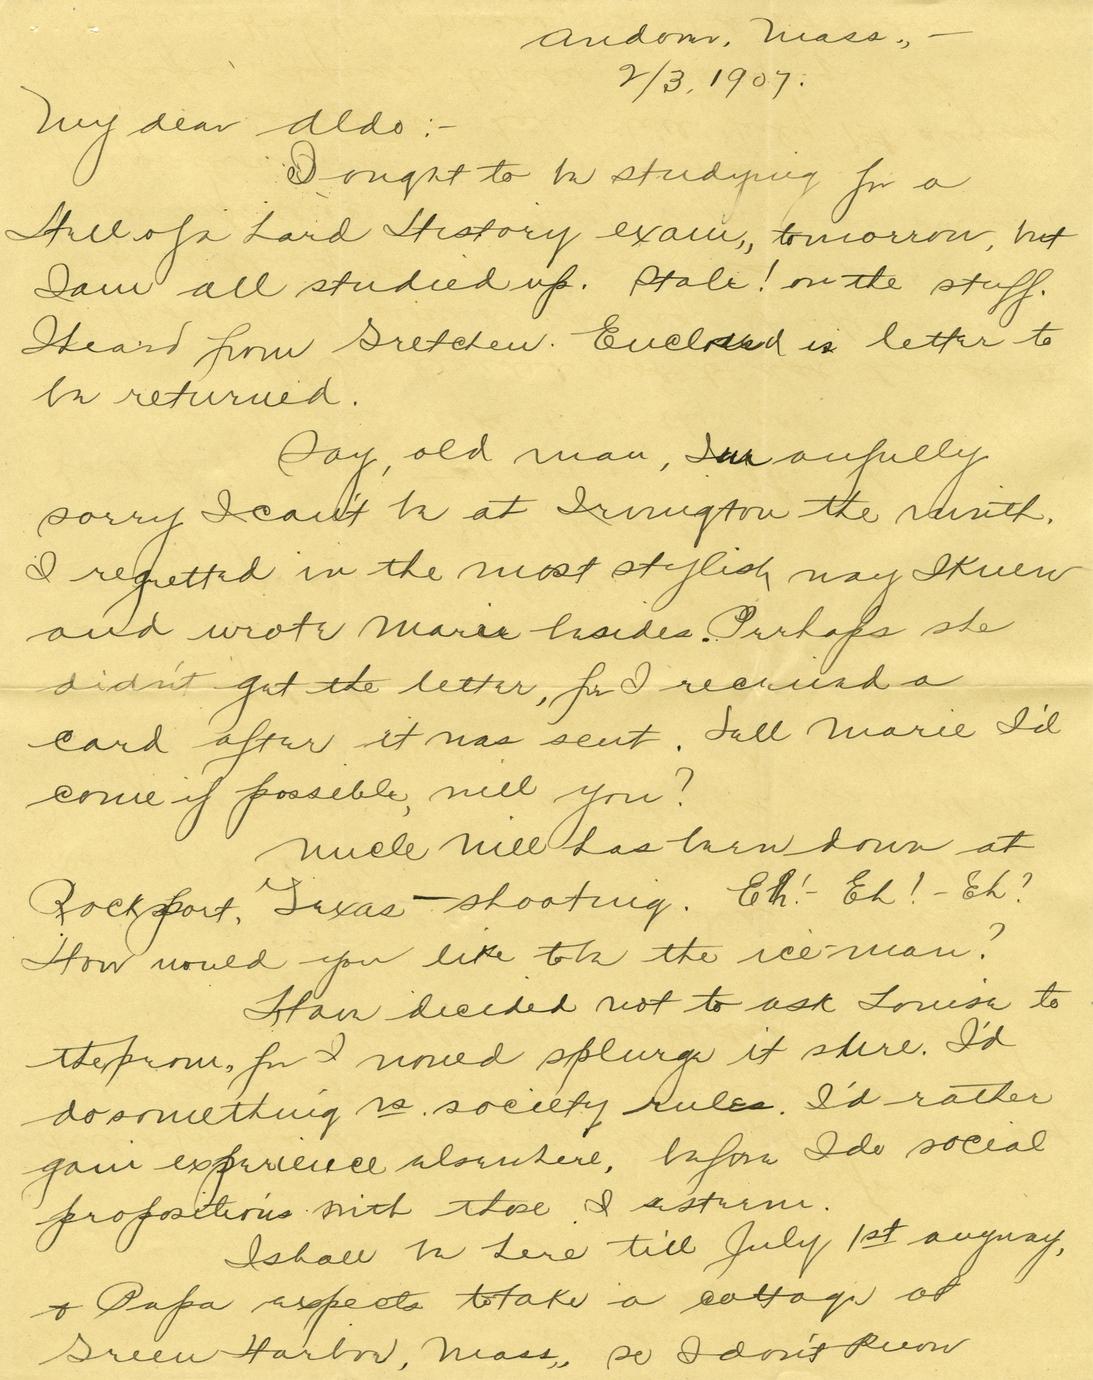 Andover, Mass., —
2/3, 1907.
My dear Aldo:—
I ought to be studying for a
Hell of a hard History exam., tomorrow, but
I am all studied up. Stale! on the stuff.
I heard from Gretchen. Enclosed is letter to
be returned.
Say, old man, I'm awfully
sorry I can't be at Irvington the ninth.
I regretted in the most stylish way I knew
and wrote Marie besides. Perhaps she
didn't get the letter, for I received a
card after it was sent. Tell Marie I'd
come if possible, will you?
Uncle Will has been down at
Rockport, Texas — shooting. Eh!- Eh!- Eh?
How would you like to be the ice-man?
Have decided not to ask Louise to
the prom, for I would splurge it shure. I'd
do something vs. society rules. I'd rather
gain experience elsewhere, before I do social
propositions with those I esteem.
I shall be here till July 1st anyway,
+ Papa expects to take a cottage at
Green Harbor, Mass., so I don't know